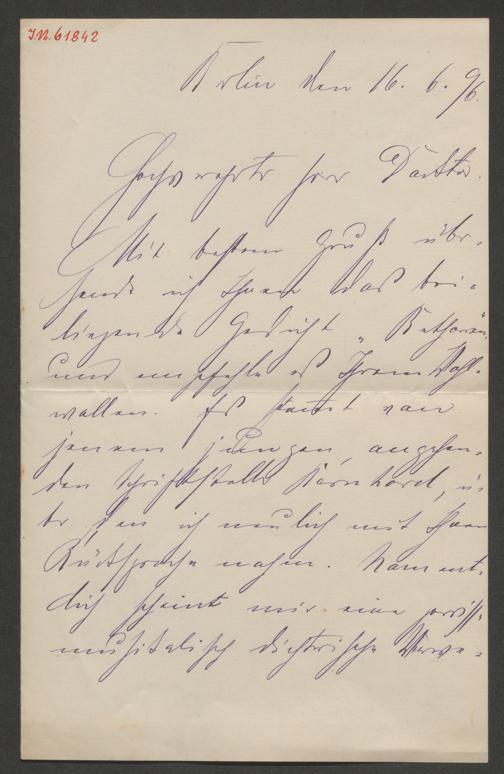 I.N. 61842
Berlin den 16. 6. 96.
Hochverehrter Herr Doktor.
Mit bestem Gruß über-
sende ich Ihnen das bei-
liegende Gedicht
und empfehle es Ihrem Wohl-
wollen. Es stammt von
jenem jungen, angehen-
den Schriftsteller Bernhard, ü-
ber den ich neulich mit Ihnen
Rücksprache nahm. Nament-
lich scheint mir eine gewisse
musikalisch dichterische